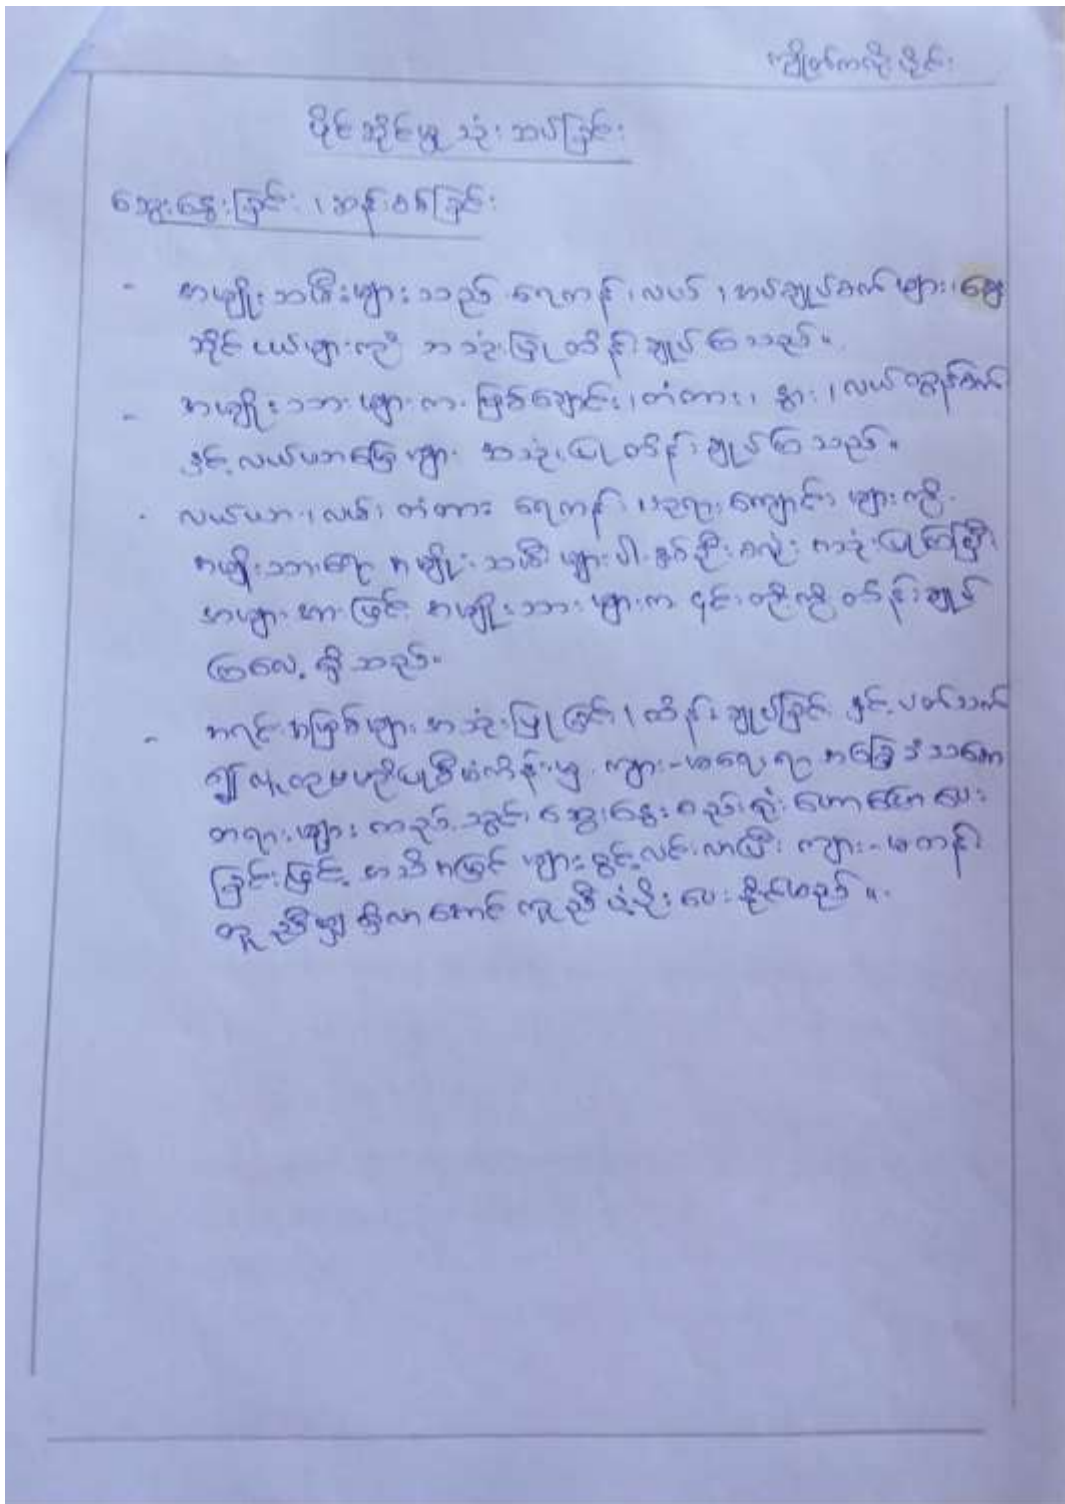 ပိုင်ဆိုင်မှု သုံးသပ်ခြင်း
ဆွေးနွေးခြင်း၊ ဆန်းစစ်ခြင်း
- အမျိုးသမီးများသည် ရေကန်၊ လယ်၊ အပ်ချုပ်စက်များ၊ ဈေး
ဆိုင်ငယ်များကို အသုံးပြု ထိန်းချုပ်ကြသည်။
- အမျိုးသားများက မြစ်ချောင်း၊ တံတား၊ နွား၊ လယ်ထွန်စက်
နှင့် လယ်ယာမြေများ အသုံးပြု ထိန်းချုပ်ကြသည်။
- လယ်ယာ၊ လမ်း၊ တံတား ရေကန်၊ ဘုရားကျောင်းများကို
အမျိုးသားရော အမျိုးသမီးများပါ နှစ်ဦးစလုံး အသုံးပြုကြပြီး
အများအားဖြင့် အမျိုးသားများက ၎င်းတို့ကို ထိန်းချုပ်
ကြလေ့ရှိသည်။
- အရင်းအမြစ်များ အသုံးပြုခြင်း၊ ထိန်းချုပ်ခြင်းနှင့် ပတ်သက်
၍ လူထုဗဟိုပြုစီမံကိန်းမှ ကျား-မရေးရာ အခြေခံသဘော
တရားများ ထည့်သွင်းဆွေးနွေး စည်းရုံးဟောပြောပေး
ခြင်းဖြင့် အသိအမြင်များ ဖွင့်လင်းလာပြီး ကျား-မတန်း
တူညီမျှရှိလာအောင် ကူညီပံ့ပိုးပေးနိုင်မည်။